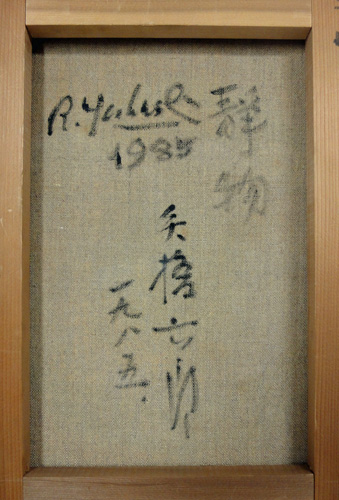 R.Yabashi
1985
静物
矢橋六郎
一九八五.